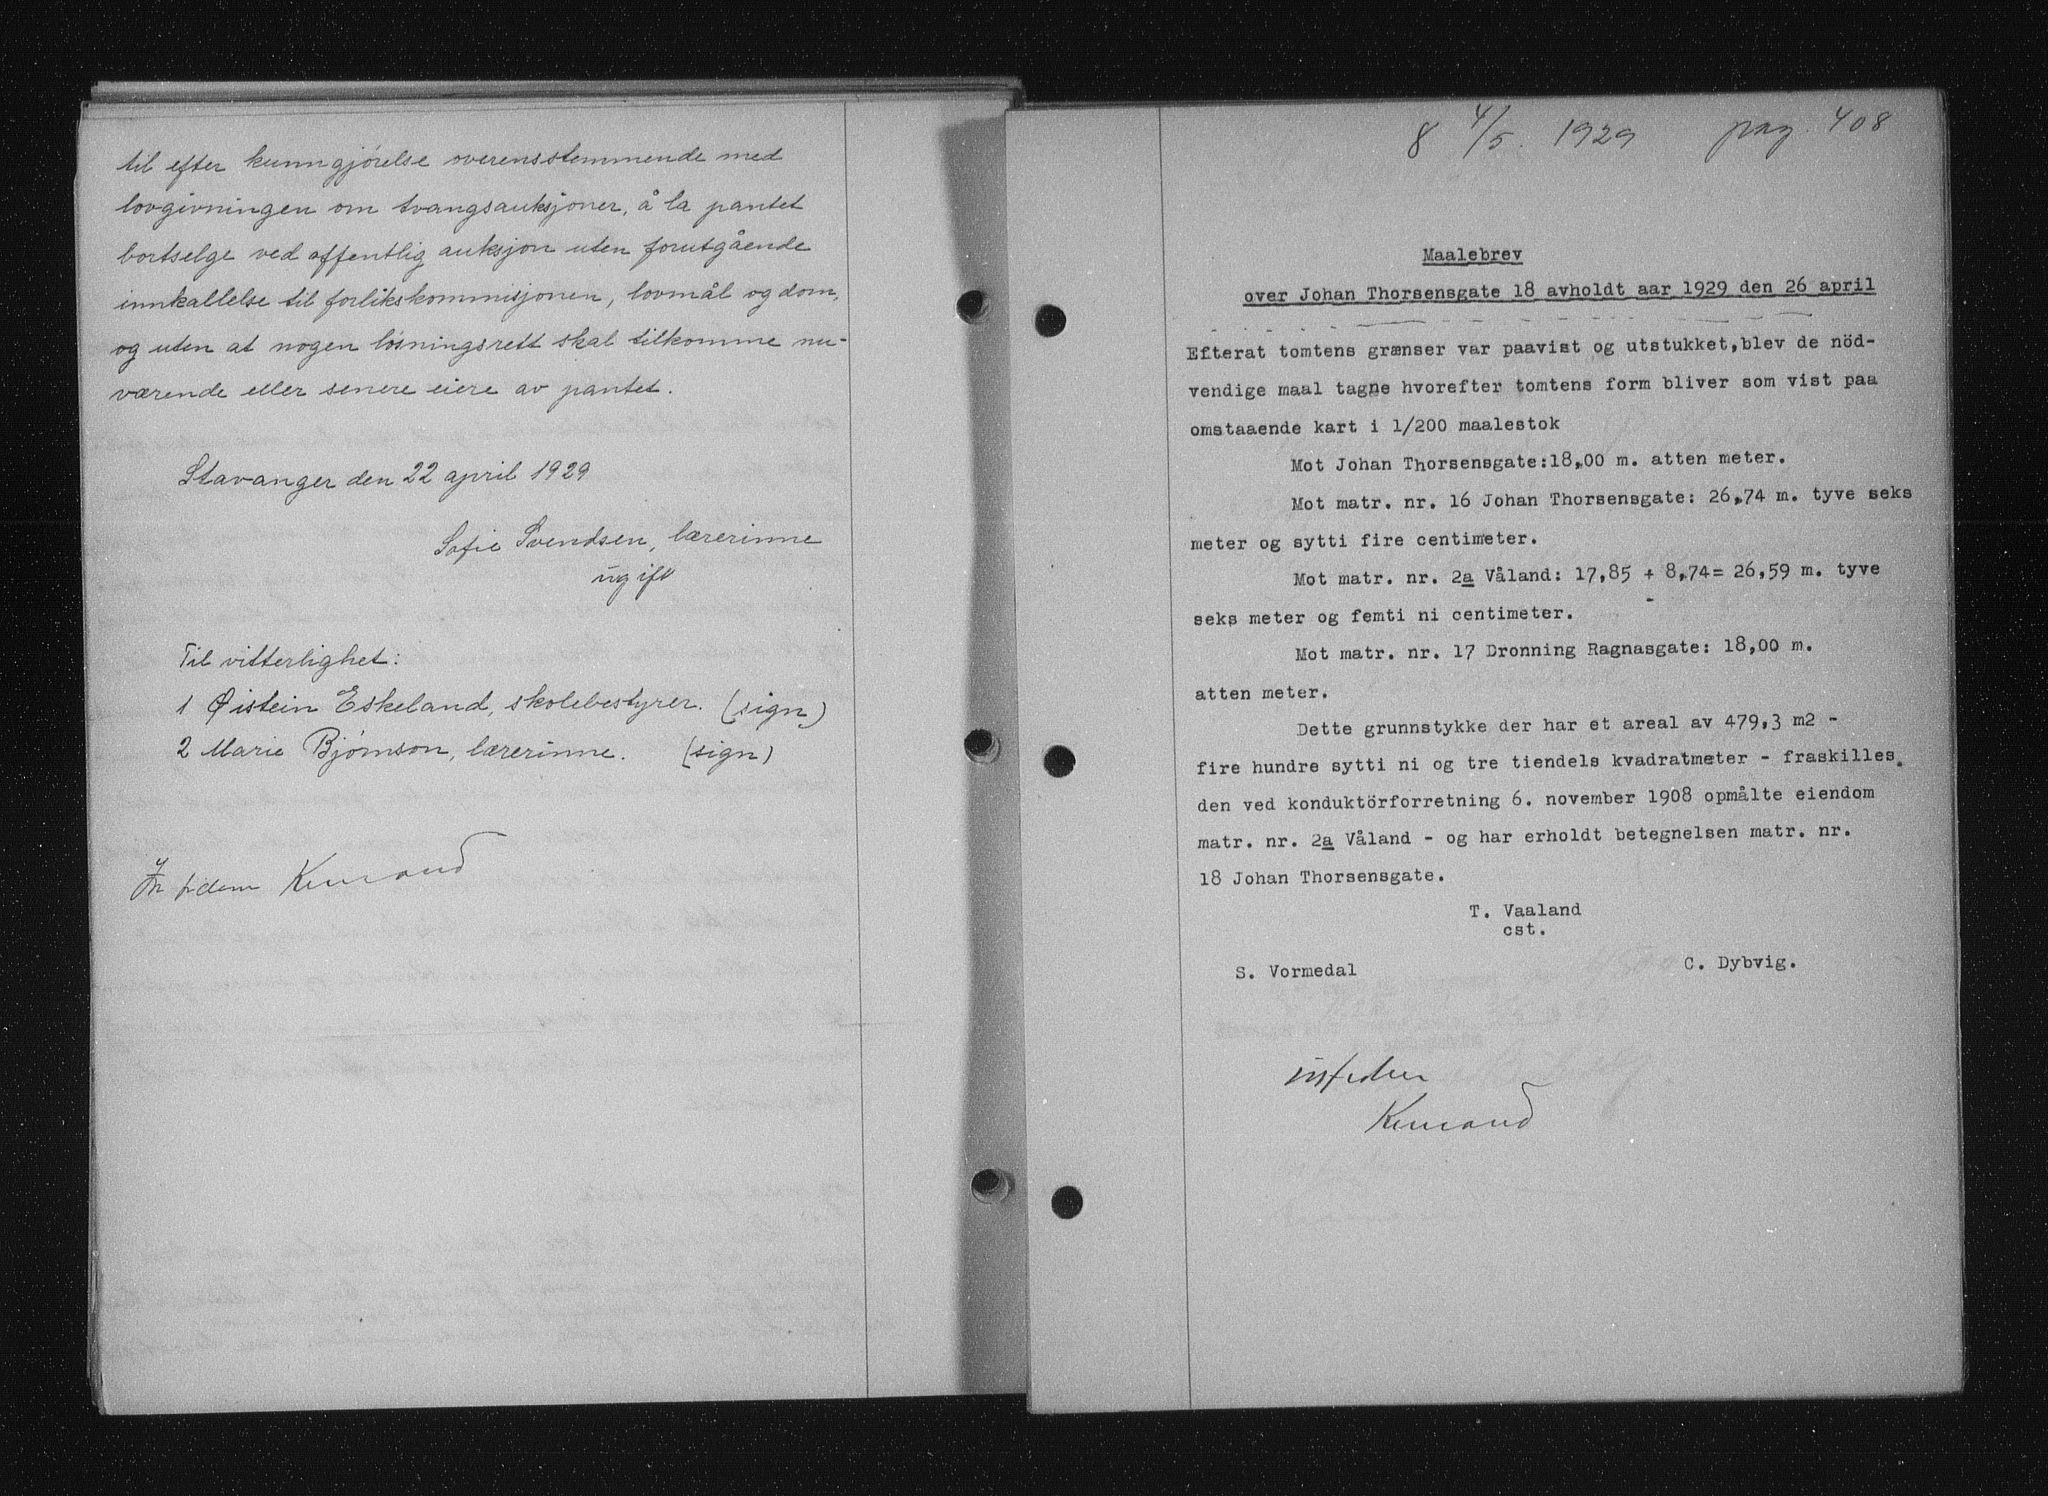 til efter kunngjørelse overensstemmende med
lovgivningen om tvangsauksjoner, å la pantet
bortselge ved offentlig auksjon uten forutgående
innkallelse til forlikskommisjonen, lovmål og dom,
og uten at nogen løsningsrett skal tilkomme nu-
værende eller senere eiere av pantet.
Stavanger den 22 april 1929
Sofie Svendsen, lærerinne
ugift
Til vitterlighet:
1 Øistein Eskeland, skolebestyrer. (sign)
2 Marie Bjørnson, lærerinne. (sign)
In fidem
8 4/5. 1929 pag. 408
Maalebrev
over Johan Thorsensgate 18 avholdt aar 1929 den 26 april
Efterat tomtens grænser var paavist og utstukket, blev de nöd-
vendige maal tagne hvorefter tomtens form bliver som vist paa
omstaaende kart i 1/200 maalestok
Mot Johan Thorsensgate: 18,00 m. atten meter.
Mot matr. nr. 16 Johan Thorsensgate: 26,74 m. tyve seks
meter og sytti fire centimeter.
Mot matr. nr. 2a Våland: 17,85 + 8,74 = 26,59 m. tyve
seks meter og femti ni centimeter.
Mot matr. nr. 17 Dronning Ragnasgate: 18,00 m.
atten meter.
Dette grunnstykke der har et areal av 479,3 m2 -
fire hundre sytti ni og tre tiendels kvadratmeter - fraskilles
den ved konduktörforretning 6. november 1908 opmålte eiendom
matr. nr. 2a Våland - og har erholdt betegnelsen matr. nr.
18 Johan Thorsensgate.
T. Vaaland
cst.
S. Vormedal C. Dybvig.
in fidem